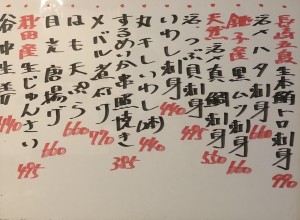 長崎五島 生本鮪トロ刺身 990
活〆ハタ刺身 660
銚子産 黒ムツ刺身 660
天然 活〆真鯛刺身 550
活つぶ貝刺身 495
いわし刺身 440
丸干しいわし(2本) 440
するめいか串照焼き 385
メバル煮付け 770
はも天ぷら 660
目光唐揚げ 660
秋田産 生じゅんさい 495
谷中生姜 440